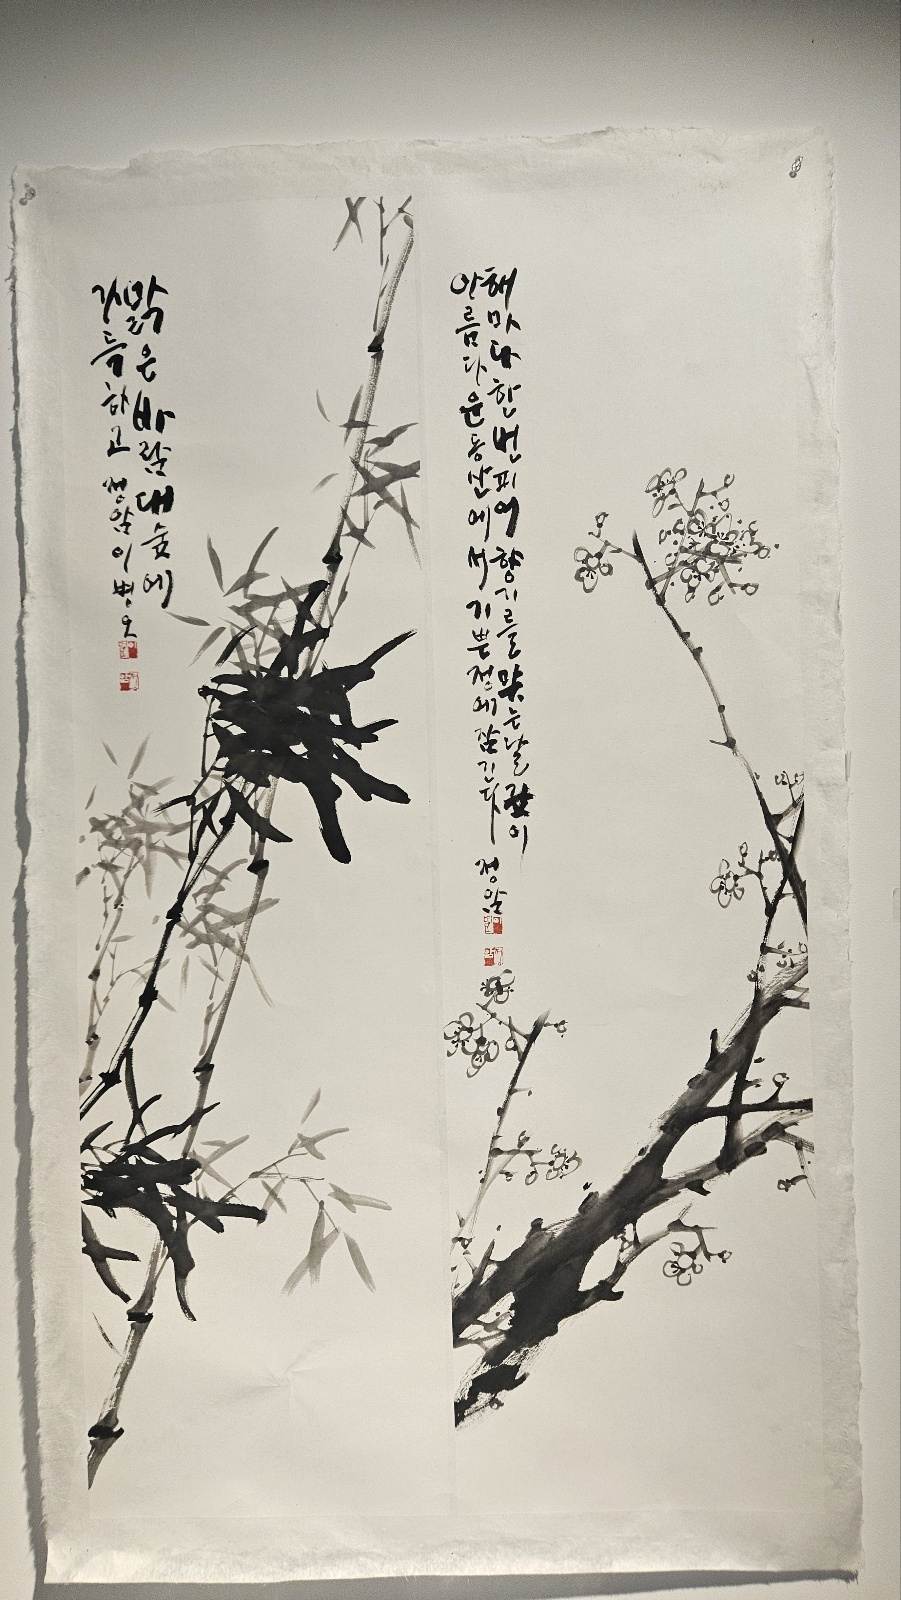 해마다 한번 피어 향기를 맞는 날 같이
아름다운 동산에서 기쁜 정에 잠긴다
정암
맑은 바람 대숲에
가득하고 정암 이병오